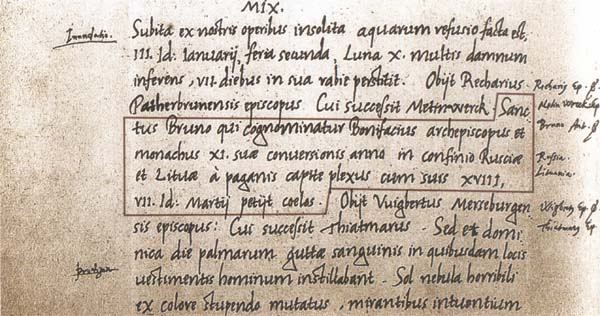 MIX.
Inundatio.
Subita ex nostris operibus insolita aquarum refusio facta est,
III. Id: Ianuarij, feria secunda, Luna X. multis damnum
inferens, VII. diebus in sua rabie perstitit. Obijt Recharius
Patherbrunensis episcopus Cui successit Metinwerck. Sanc
tus Bruno qui cognominatur Bonifacius archepiscopus et
monachus XI. suæ conversionis anno in confinio Rusciæ
et Lituæ à paganis capite plexus cum suis XVIII,
VII. Id: Martij petijt coelos. Obijt Vuigbertus Merseburgen
sis episcopus: Cui successit Thiatmarus. Sed et domi
nica die palmarum guttæ sanguinis in quibusdam locis
vestimentis hominum instillabant. Sol nebula horribili
ex colore stupendo mutatus, mirantibus intuentium
Rechariy Ep.
Bruno
Russia.
Lituania.
Ep.
Thiatmary Ep.